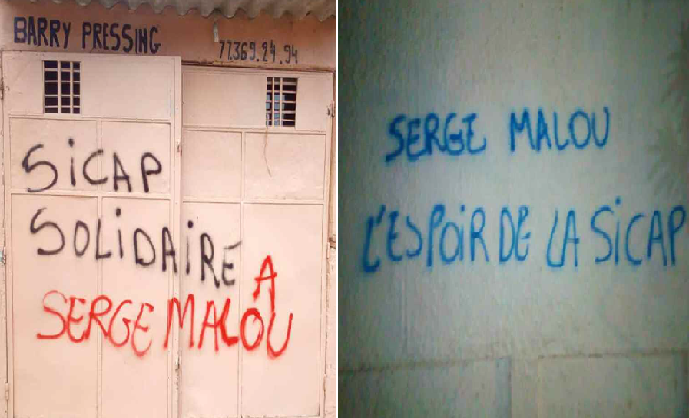 BARRY PRESSING
77.369.24.94
SiCAP
SOLiDAiRE A
SERGE MALOU
SERGE MALOU
L'ESPOiR DE LA SiCAP